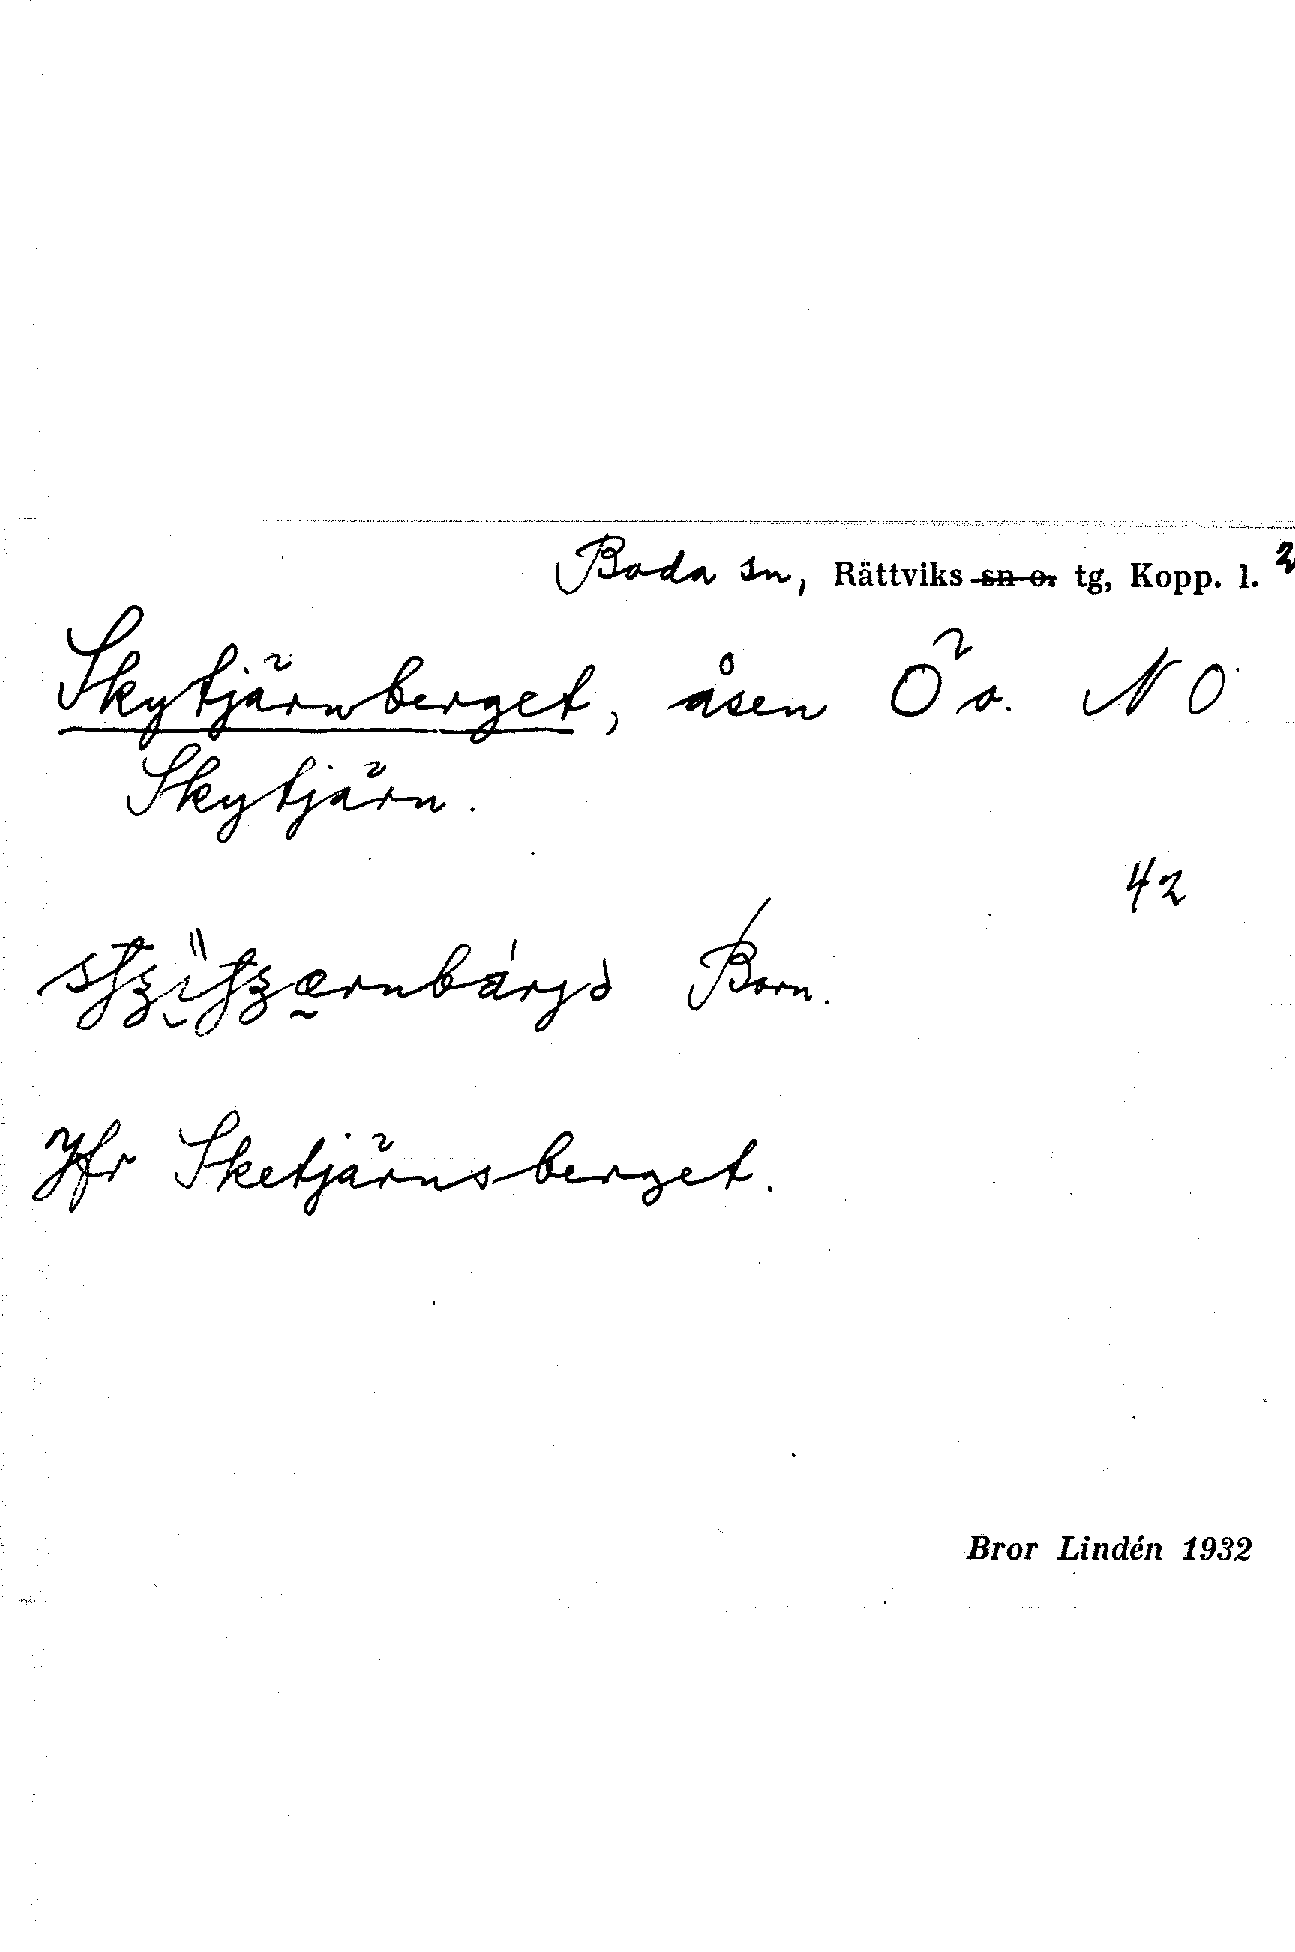 Boda sn, Rättviks ~~sn o.~~ tg, Kopp. l. 2
Skytjärnberget, åsen Ö o. NO
Skytjärn.
42
Born.
Jfr Sketjärnsberget.
Bror Lindén 1932